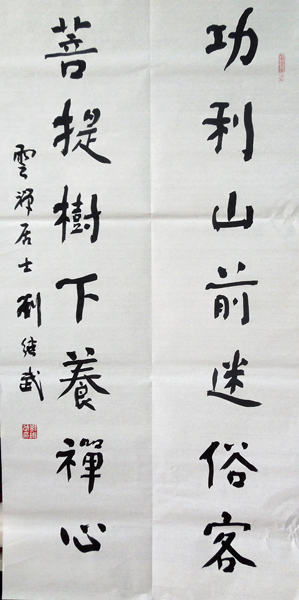 功利山前迷俗客
菩提樹下養禪心
雲禪居士劉继武